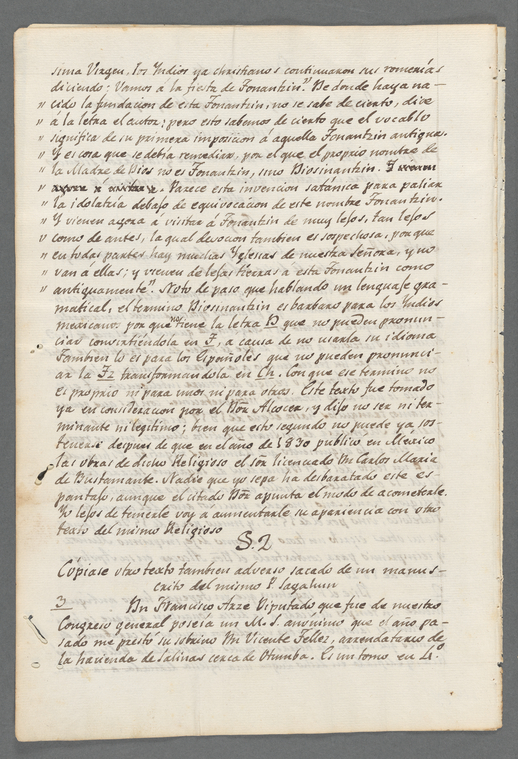 sima Virgen, los Indios ya christianos continuaron sus romerías
diciendo: Vamos á la fiesta de Tonantzin." De donde haya na-
" cido la fundacion de esta Tonantzin, no se sabe de cierto, dice
" á la letra el autor; pero esto sabemos de cierto que el vocablo
" significa de su primera imposicion á aquella Tonantzin antigua.
" Y es cosa que se debia remediar, por el que el proprio nombre de
" la Madre de Dios no es Tonantzin, sino Diosinantzin.
" Parece esta invencion satánica para paliar
" la idolatria debajo de equivocacion de este nombre Tonantzin.
" Y vienen agora á visitar á Tonantzin de muy lejos, tan lejos
" como de antes, la qual devocion tambien es sospechosa, porque
" en todas partes hay muchas Yglesias de nuestra Señora, y no
" van á ellas; y vienen de lejas tierras á esta Tonantzin como
" antiguamente". Noto de paso que hablando un lenguaje gra-
matical, el termino Diosinantzin es barbaro para los Indios
mexicanos: porque no tiene la letra D que no pueden pronun-
ciar convirtiéndola en T, a causa de no usarla su idioma
Tambien lo es para los Españoles que no pueden pronunci-
ar la Tz transformandola en Ch. Con que ese termino no
es proprio ni para unos ni para otros. Este texto fue tomado
ya en consideracion por el Dor Alcocer, y dijo no ser ni ter-
minante ni legitimo; bien que esto segundo no puede ya sos-
tenerse despues de que en el año de 1830 publico en Mexico
las obras de dicho Religioso el sor licenciado Dn Carlos Maria
de Bustamante. Nadie que yo sepa ha desbaratado este es-
pantajo, aunque el citado Dor apunta el modo de acometerle.
Yo lejos de temerle voy a aumentarle su aperiencia con otro
texto del mismo Religioso
S. 2
Cópiase otro texto tambien adverso sacado de un manus-
crito del mismo P. Sagahun
3 Dn Francisco Arze Diputado que fue de nuestro
Congreso general poseía un M. S. anonimo que el año pa-
sado me prestó su sobrino Dn Vicente Tellez, arrendatario de
la hacienda de Salinas cerca de Otumba. Es un tomo en 4.º